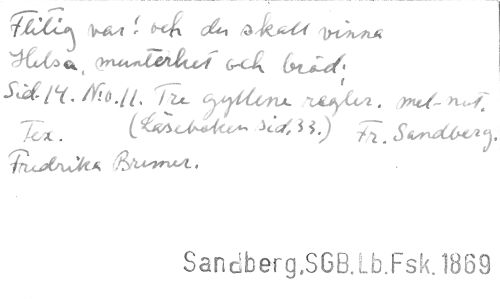 Flitig var! och du skall vinna
Helsa, munterhet och bröd;
Sid. 14. N:o. 11. Tre gyllene regler. mel-not.
Tex. (Läseboken Sid. 33.) Fr. Sandberg.
Fredrika Bremer.
Sandberg,SGB.Lb.Fsk.1869